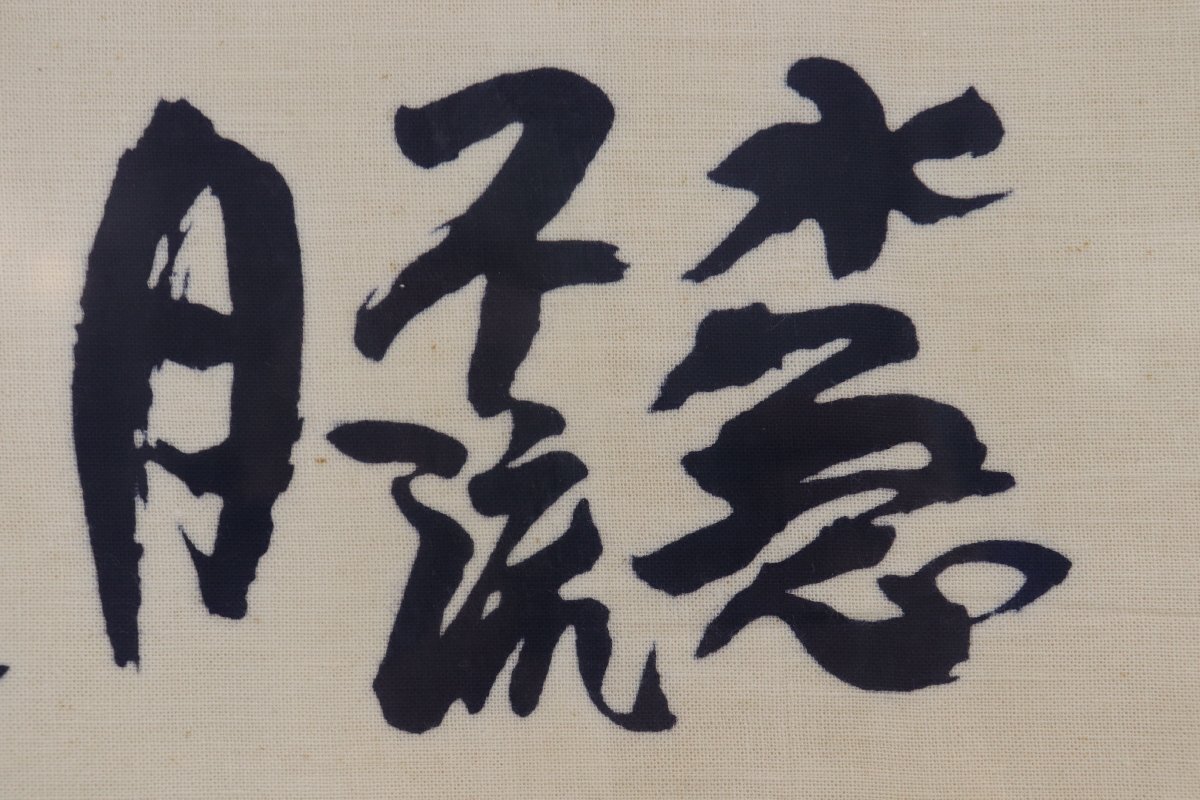 水急
不流
月